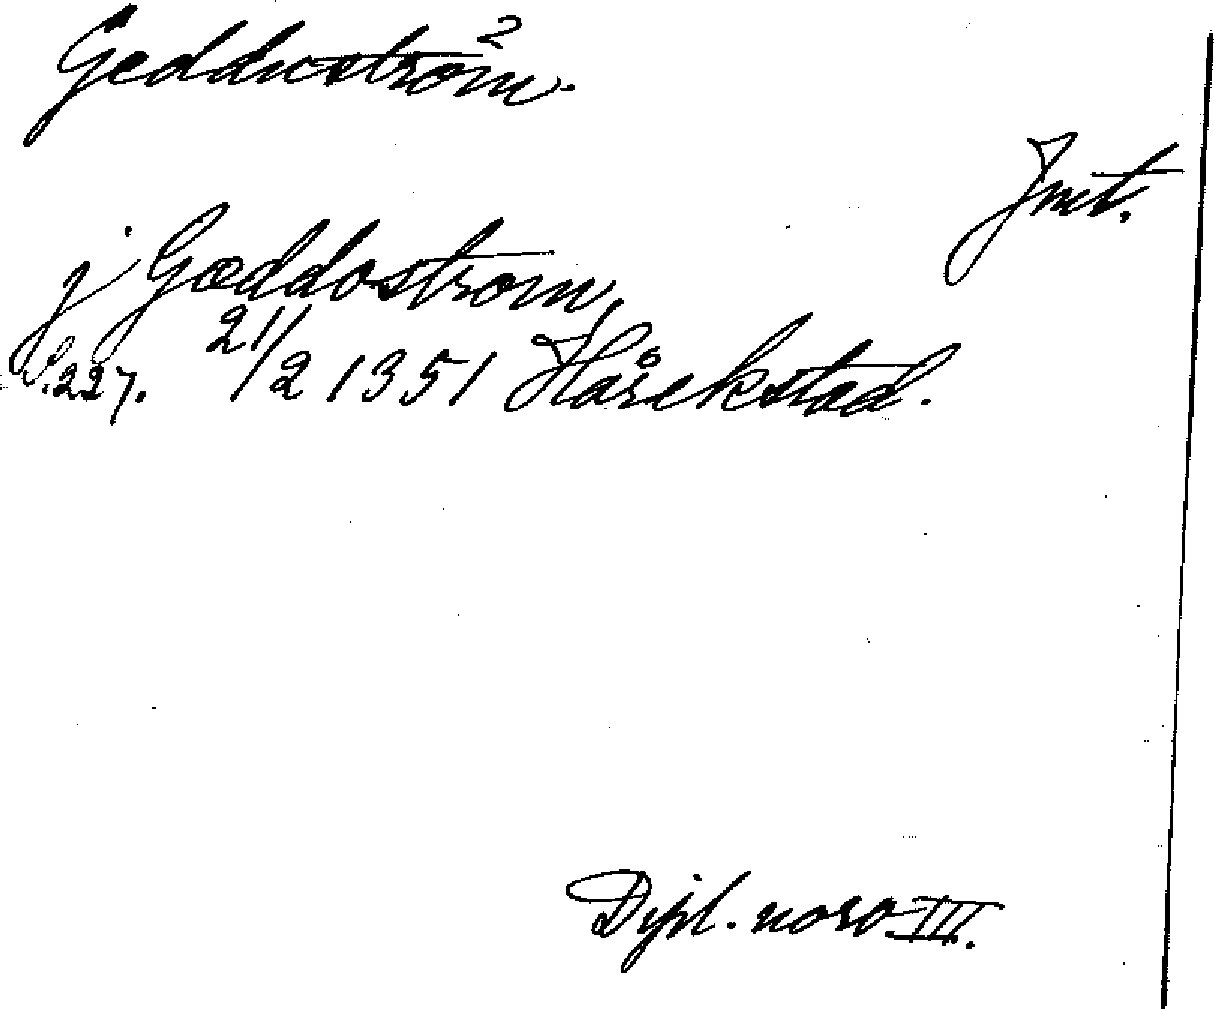 Gedduström.
Jmt.
j Gæddostrom,
S. 227. 21/2 1351 Hårekstad.
Dipl. norv. III.